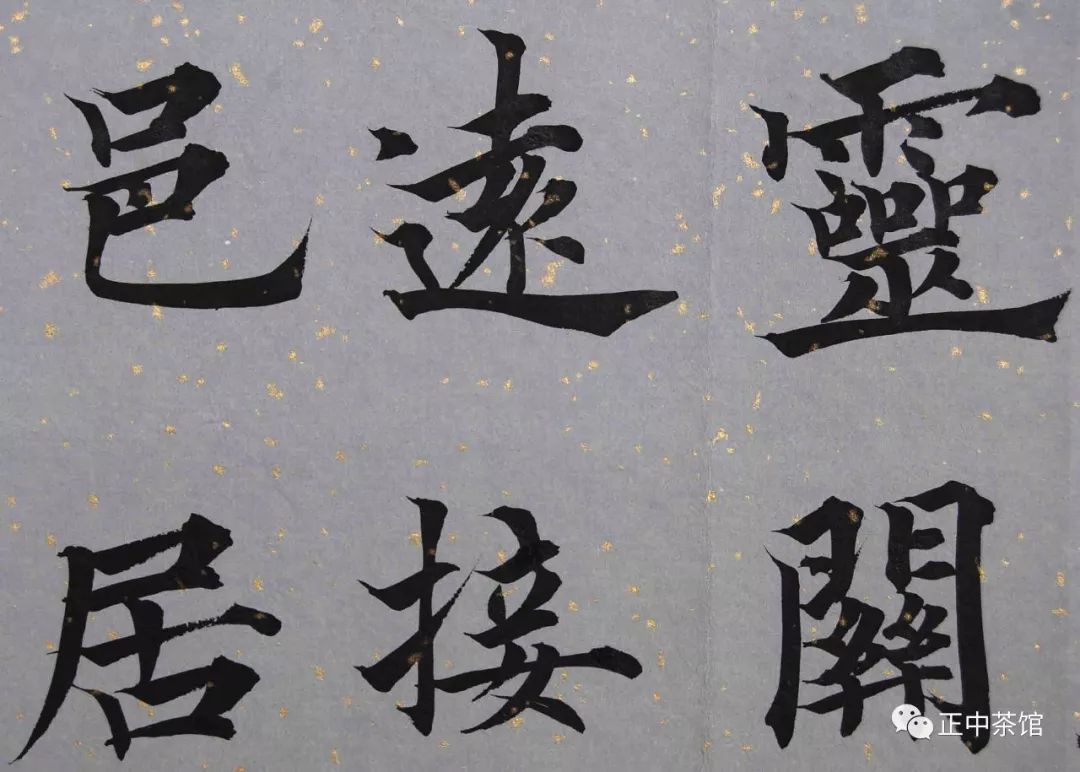 靈關
遠接
邑居
正中茶馆